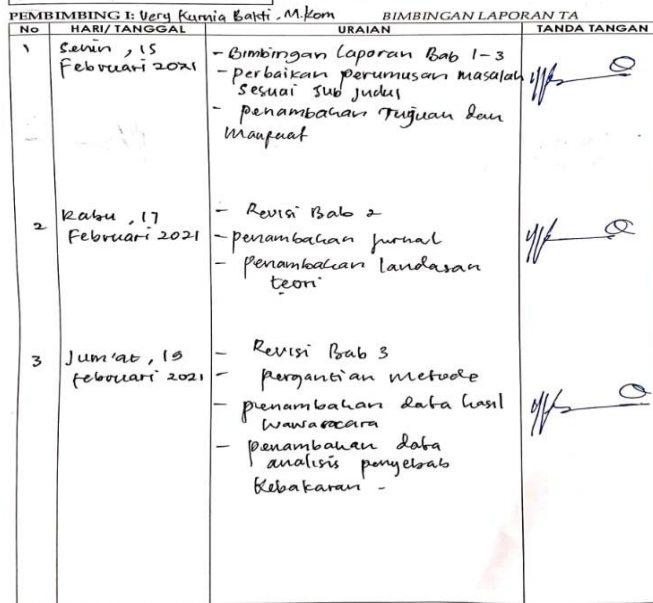 PEMBIMBING I: Very Kurnia Bakti, M.Kom BIMBINGAN LAPORAN TA
No HARI/TANGGAL URAIAN TANDA TANGAN
1 Senin, 15 - Bimbingan Laporan Bab 1-3
Februari 2021 - perbaikan perumusan masalah
sesuai sub judul
- penambahan Tujuan dan
Manfaat
2 Rabu, 17 - Revisi Bab 2
Februari 2021 - penambahan jurnal
- penambahan landasan
teori
3 Jum'at, 19 - Revisi Bab 3
Februari 2021 - pergantian metode
- penambahan data hasil
wawancara
- penambahan data
analisis penyebab
kebakaran -